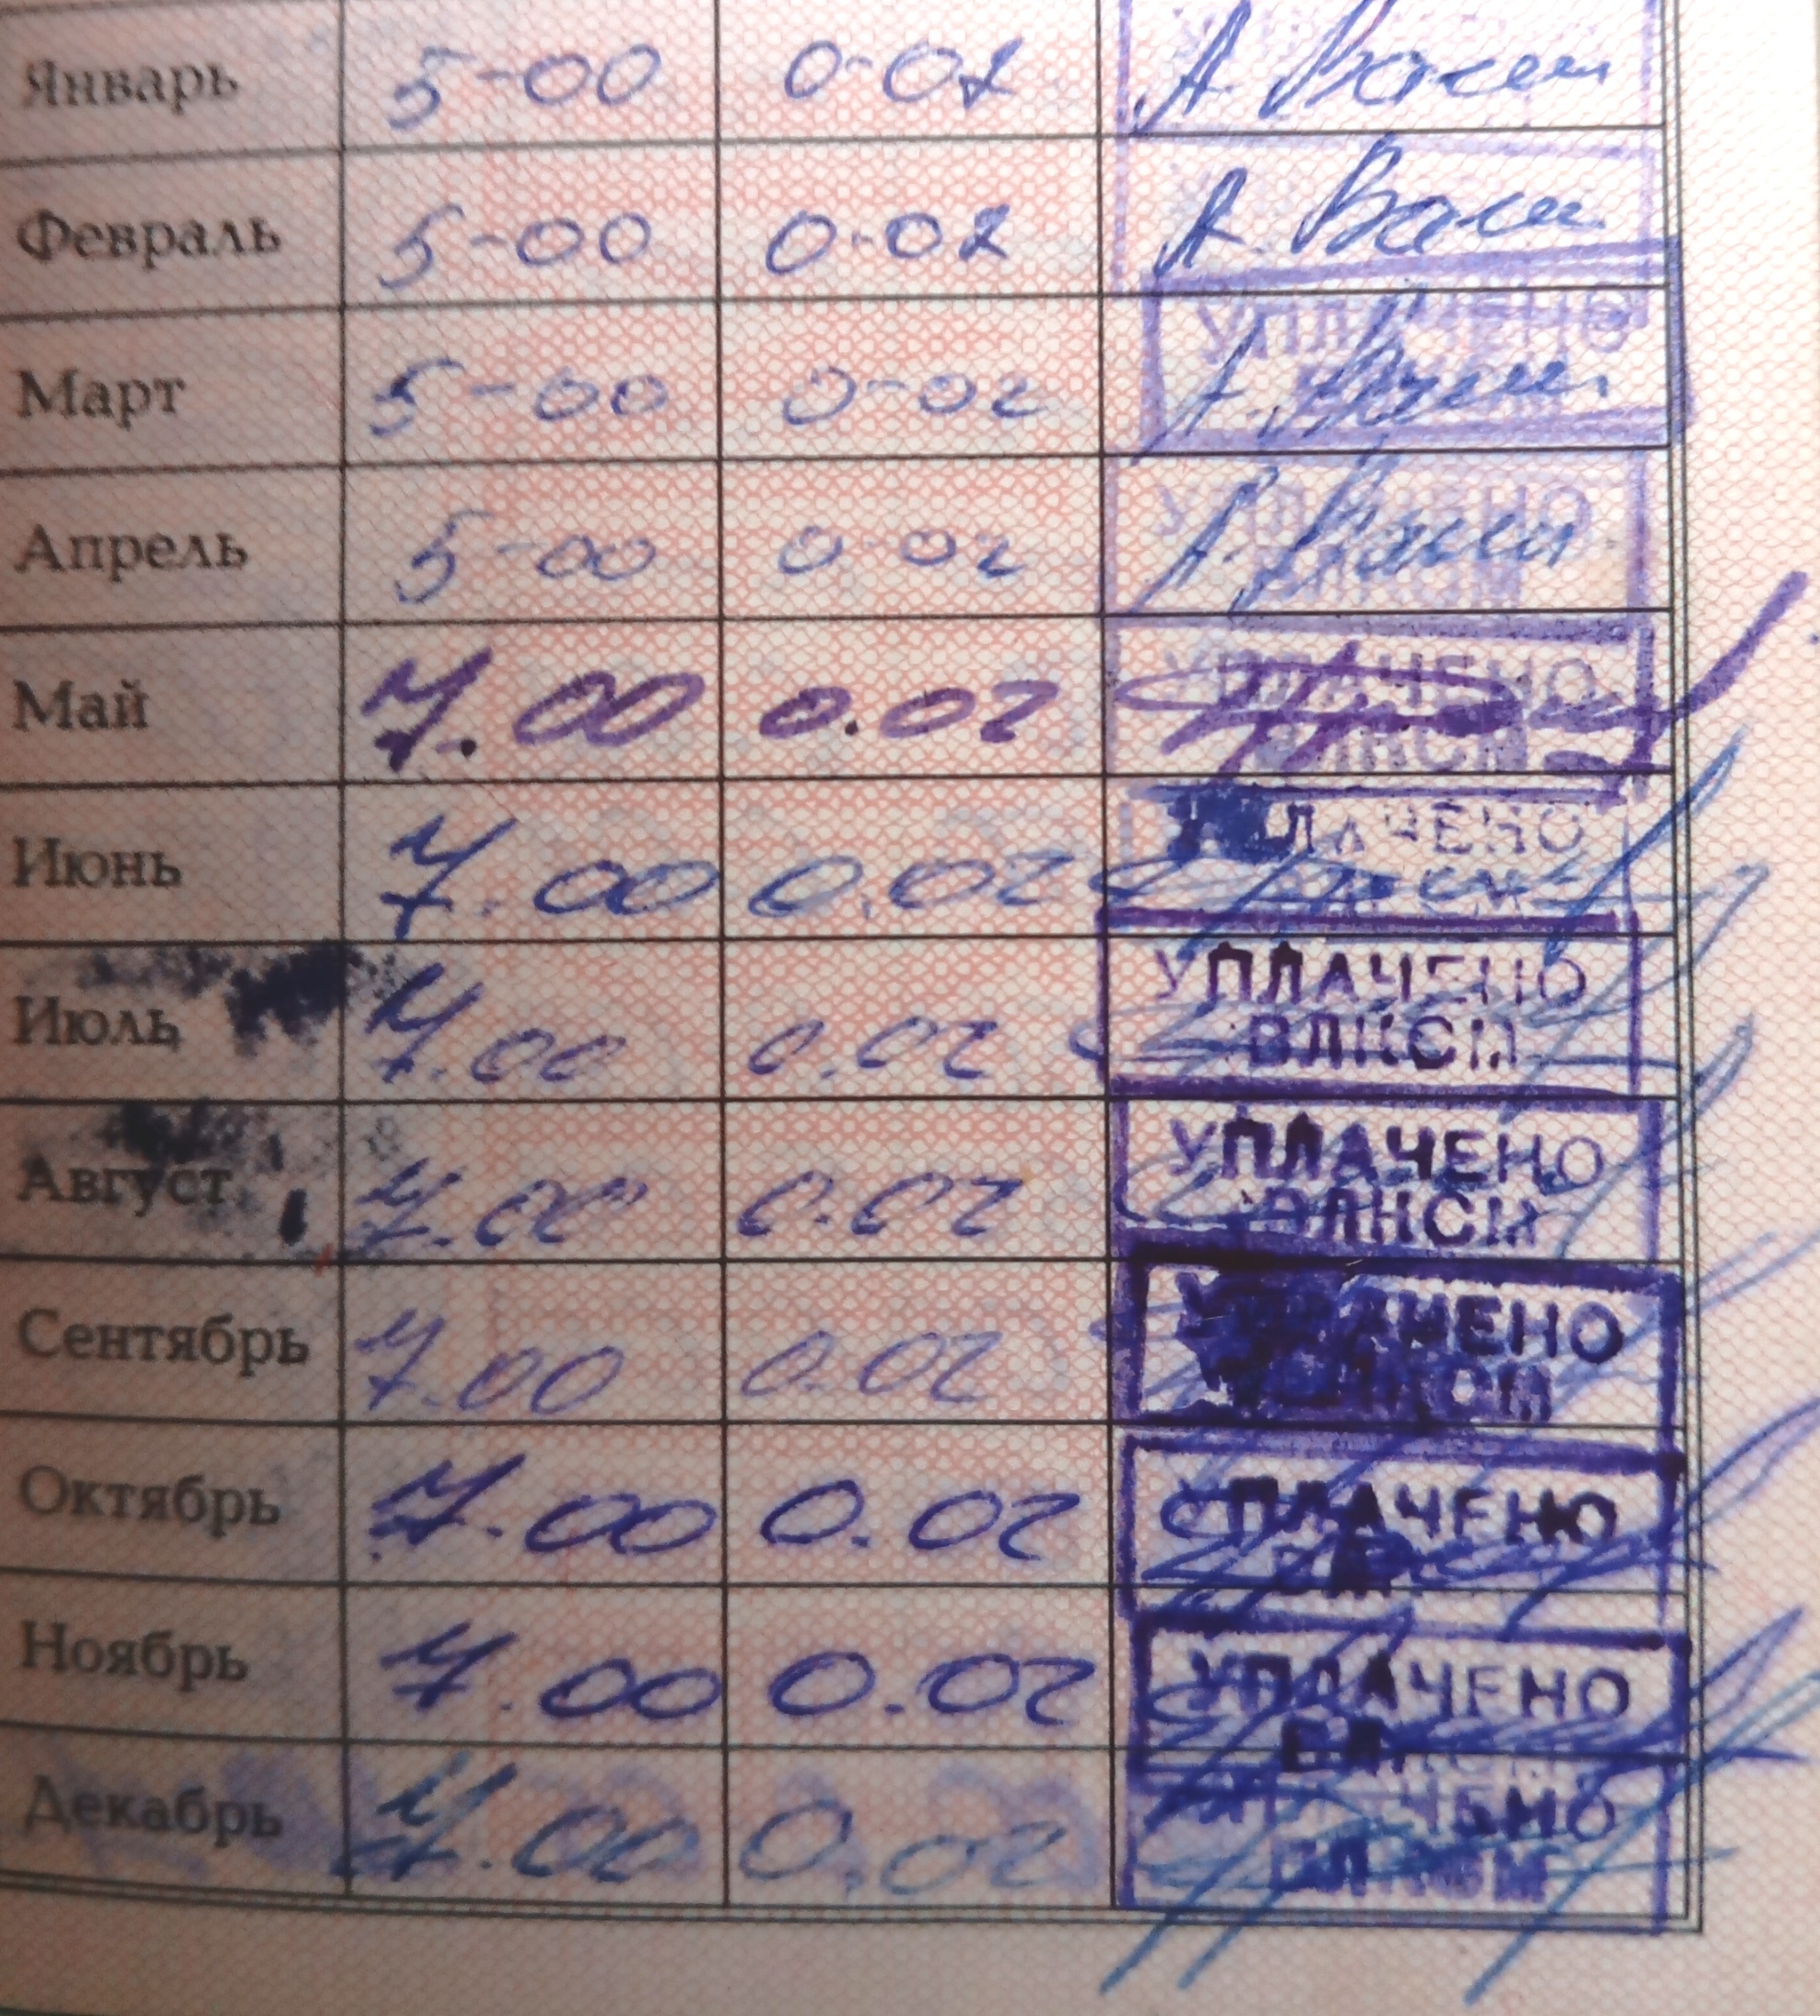 Январь 5-00 0-02
Февраль 5-00 0-02
Март 5-00 0-02 УПЛАЧЕНО ВЛКСМ
Апрель 5-00 0-02 УПЛАЧЕНО ВЛКСМ
Май 7.00 0.02 УПЛАЧЕНО ВЛКСМ
Июнь 7.00 0.02 УПЛАЧЕНО ВЛКСМ
Июль 7.00 0.02 УПЛАЧЕНО ВЛКСМ
Август 7.00 0.02 УПЛАЧЕНО ВЛКСМ
Сентябрь 7.00 0.02 УПЛАЧЕНО ВЛКСМ
Октябрь 7.00 0.02 УПЛАЧЕНО
Ноябрь 7.00 0.02 УПЛАЧЕНО
Декабрь 7.00 0.02 УПЛАЧЕНО ВЛКСМ